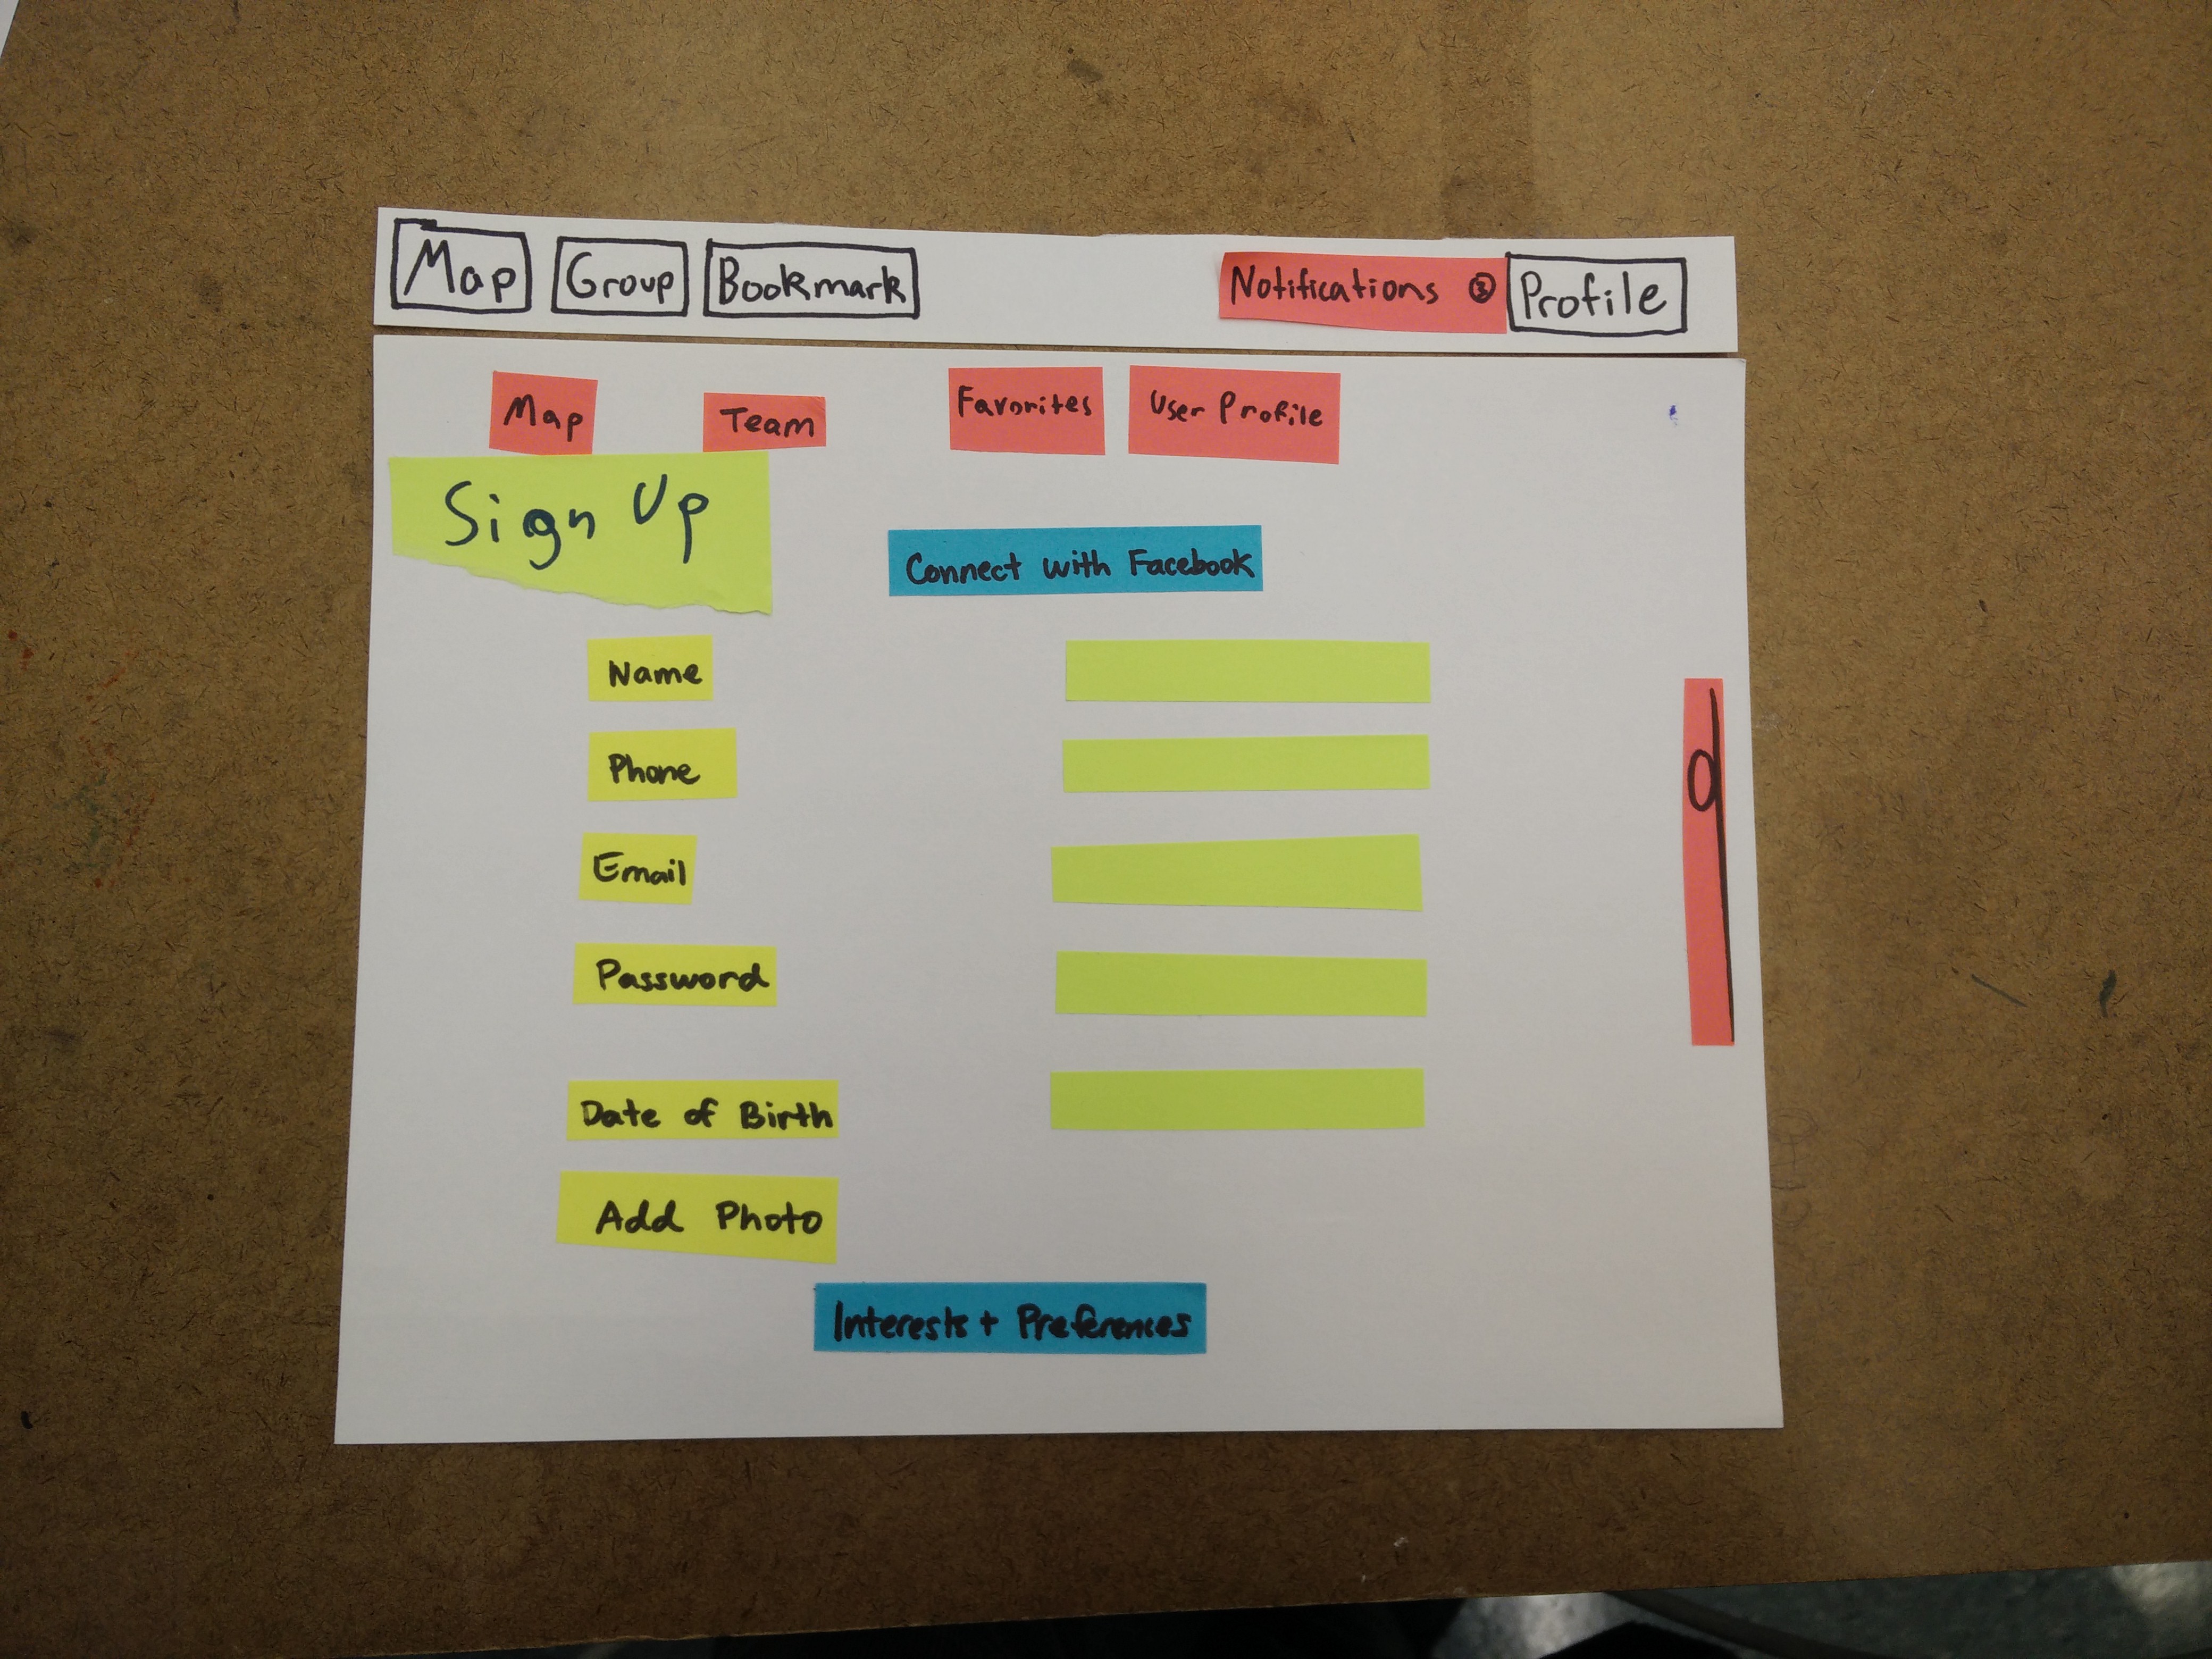 Map Group Bookmark Notifications 3 Profile
Map Team Favorites User Profile
Sign Up
Connect with Facebook
Name
Phone
Email
Password
Date of Birth
Add Photo
Interests + Preferences